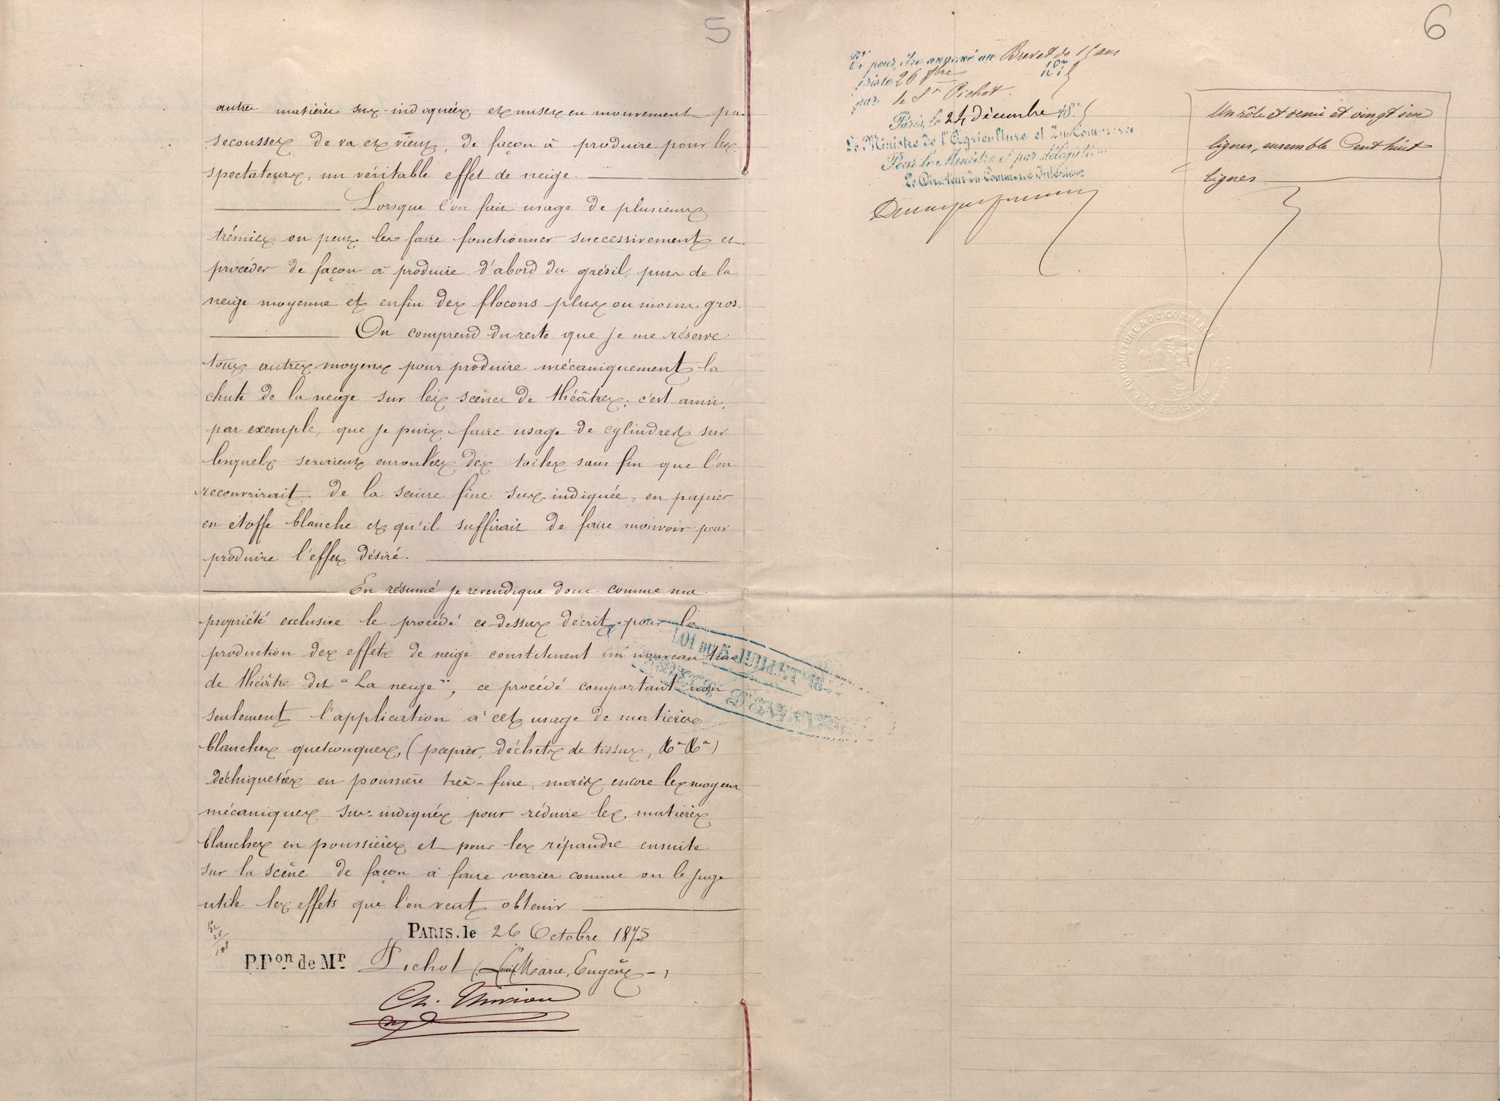 5
autre matière sus-indiquées et mises en mouvement par
secousses de va et vient, de façon à produire pour les
spectateurs, un véritable effet de neige.
Lorsque l'on fait usage de plusieurs
trémies on peut les faire fonctionner successivement et
procéder de façon à produire d'abord du grésil, puis de la
neige moyenne et enfin des flocons plus ou moins gros.
On comprend du reste que je me réserve
tous autres moyens pour produire mécaniquement la
chute de la neige sur les scènes de théâtres; c'est ainsi,
par exemple, que je puis faire usage de cylindres sur
lesquels seraient enroulées des toiles sans fin que l'on
recouvrirait de la sciure fine sus-indiquée, en papier
en étoffe blanche et qu'il suffirait de faire mouvoir pour
produire l'effet désiré.
En résumé je revendique donc comme ma
propriété exclusive le procédé ci-dessus décrit pour la
production des effets de neige constituant un nouveau truc
de théâtre dit "La neige", ce procédé comportant non
seulement l'application à cet usage de matières
blanches quelconques, (papier, déchets de tissus, &a &a)
déchiquetées en poussière très-fine, mais encore les moyens
mécaniques sus-indiqués pour réduire les matières
blanches en poussières et pour les répandre ensuite
sur la scène de façon à faire varier comme on le juge
utile les effets que l'on veut obtenir
PARIS, le 26 Octobre 1875
P.Pon de Mr Pichot (Louis Marie, Eugène)
Ch. Thirion
6
Vu pour être annexé au Brevet de 15 ans
pris le 26 8bre 1875
par le Sr Pichot.
Paris, le 24 décembre 1875
Le Ministre de l'Agriculture et du Commerce
Pour le Ministre et par délégation
Le Directeur du Commerce Intérieur
Un rôle et demi et vingt un
lignes, ensemble Cent huit
lignes